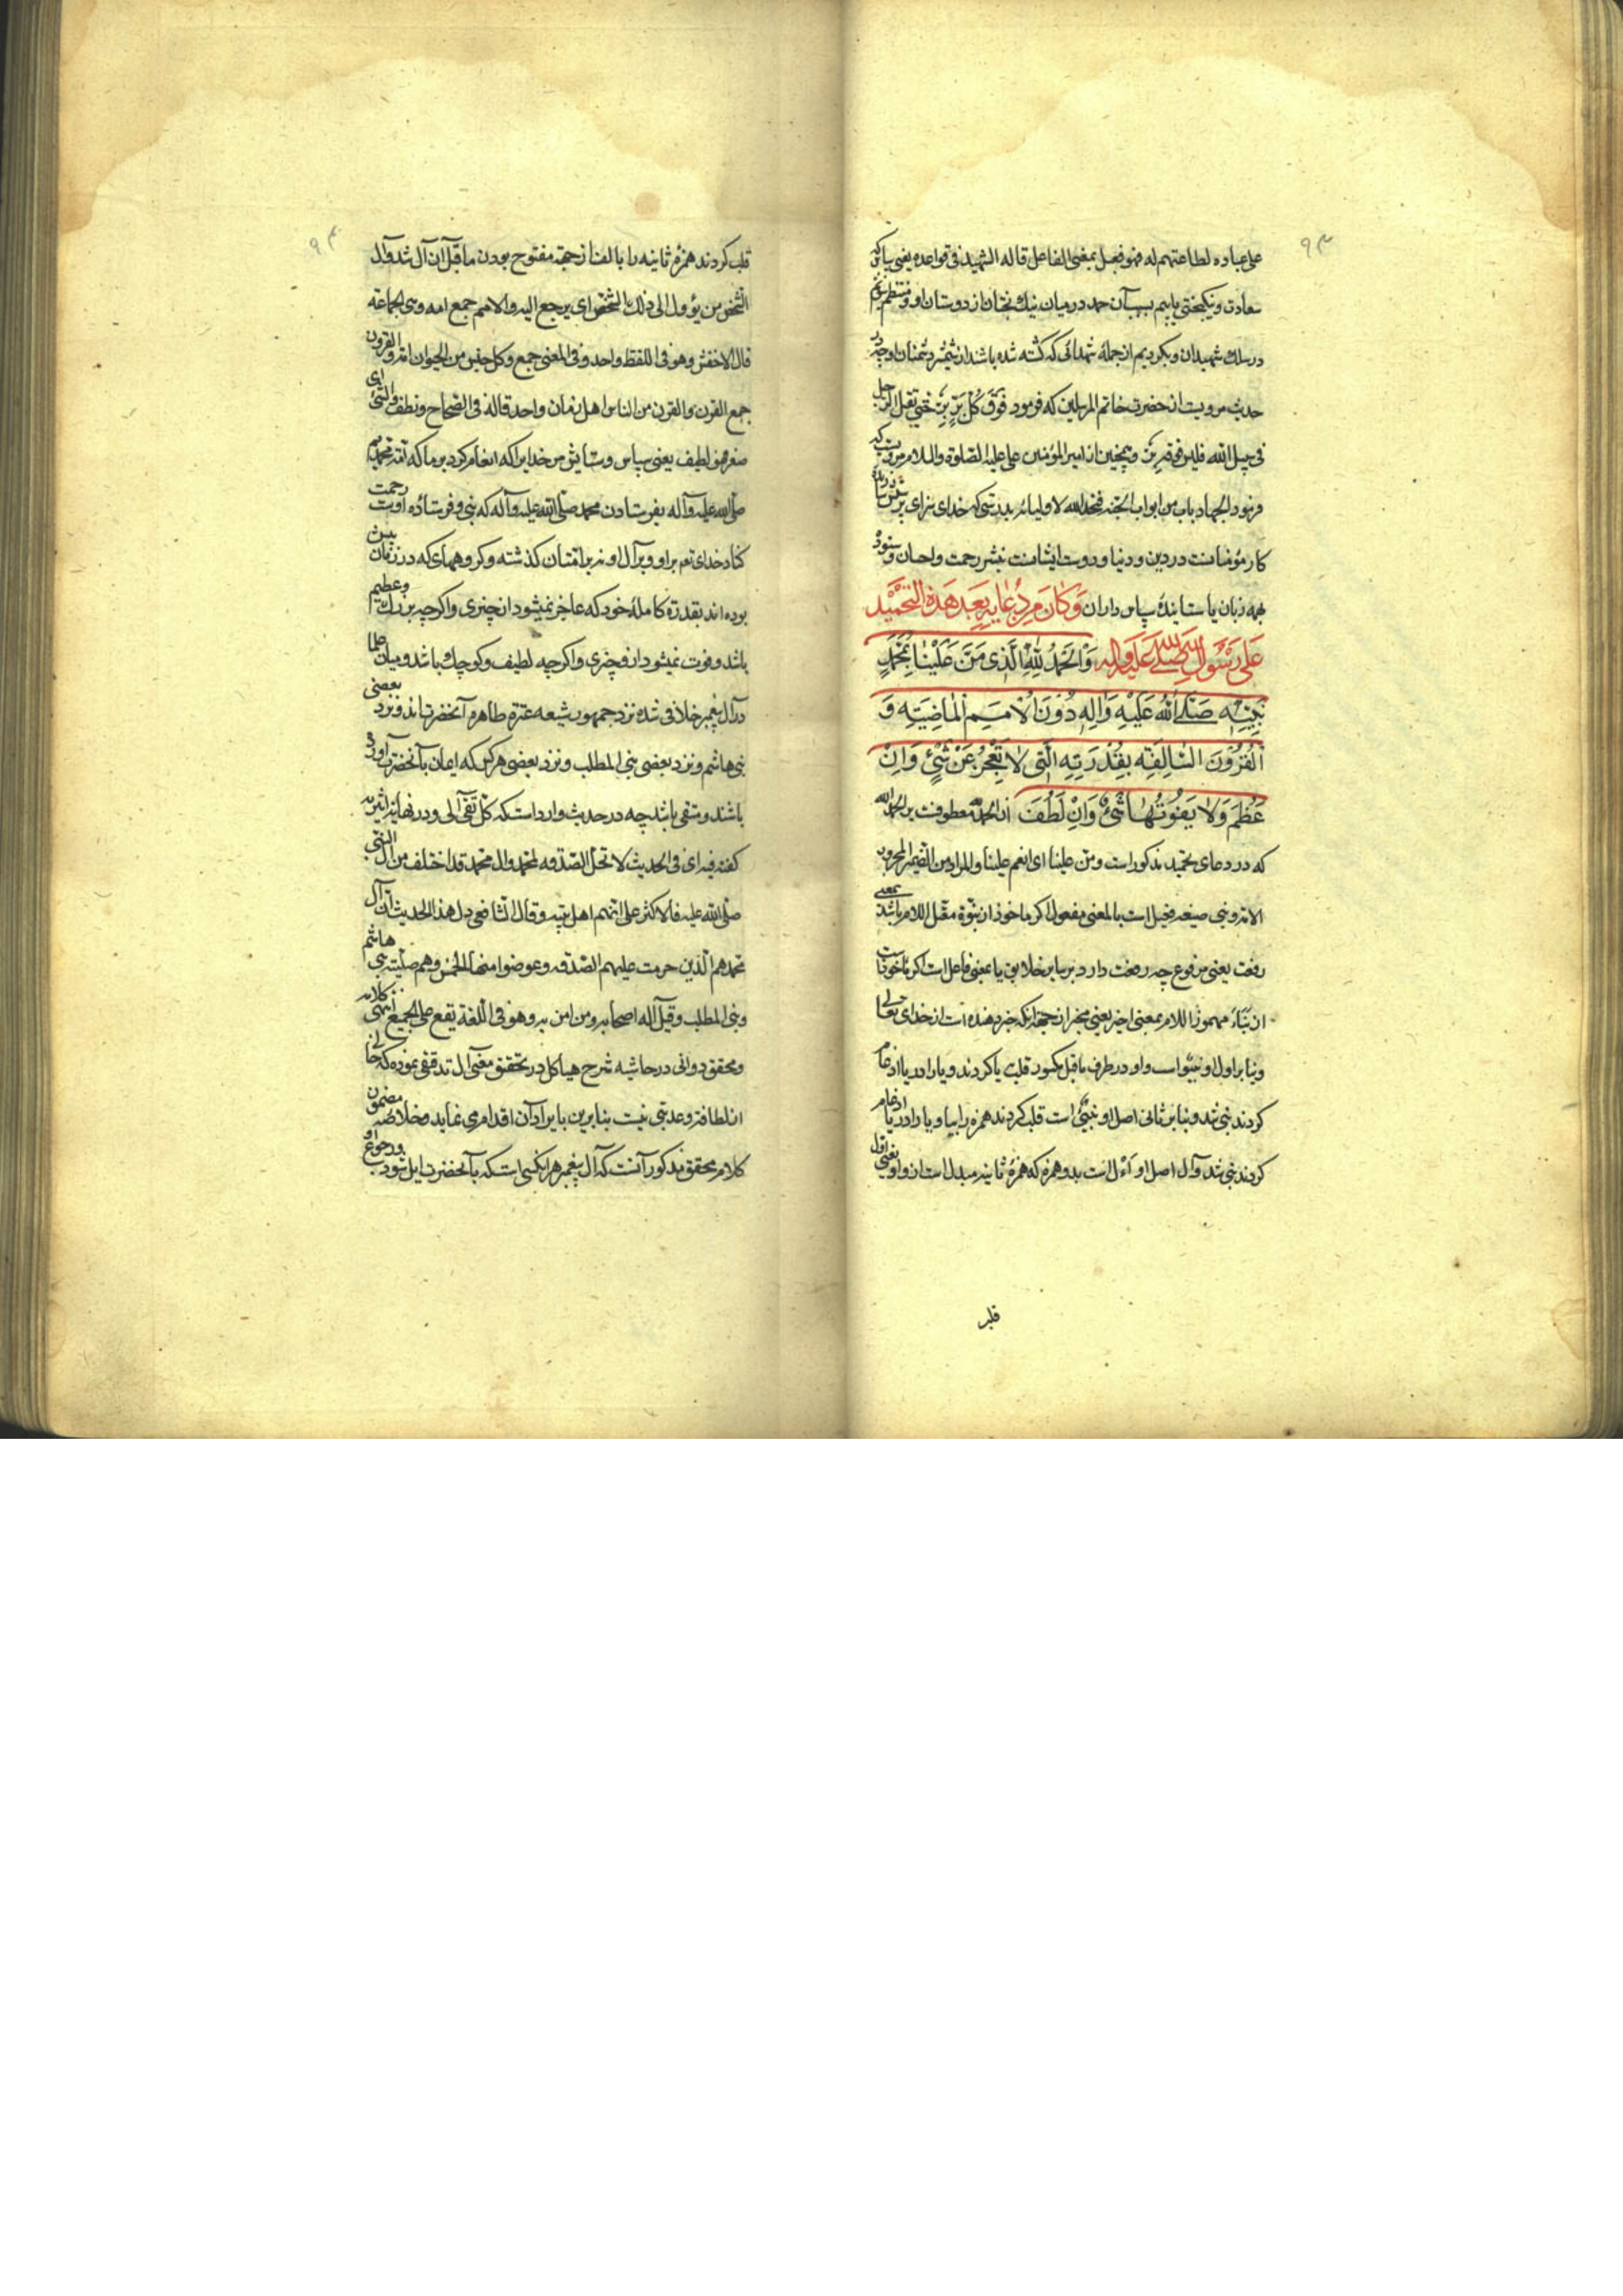 ۹۳
علی عباده لطاعتهم له فهو فعیل بمعنی الفاعل قاله الشهید فی قواعده یعنی سپاسی که
سعادت و نیکبختی یابیم بسبب آن حمد در میان نیک بختان از دوستان او و منتظم شویم
در سلک شهیدان و بگردیم از جملهٔ شهدائی که کشته شده باشد از شمشیر دشمنان او چه در
حدیث مرویست از حضرت خاتم المرسلین که فرمود فوق کل برّ برّ حتی یقتل الرجل
فی سبیل الله فلیس فوقه برّ و همچنین از امیر المؤمنین علی علیه الصلوة والسلام مرویست که
فرمود الجهاد باب من ابواب الجنة فتحه الله لاولیائه بدرستی که خدای سزای پرستش
کار مؤمنانست در دین و دنیا و دوست ایشانست بنشر رحمت و احسان و ستوده
بهمه زبان یا ستایندهٔ سپاس داران وَكَانَ مِن دُعَائِهِ بَعدَ هَذِهِ التَّحمِيدِ
عَلى رَسُولِ اللهِ صَلَّى اللهُ عَلَيهِ وَآلِهِ وَالحَمدُ لِلّهِ الَّذِى مَنَّ عَلَينَا بِمُحَمَّدٍ
نَبِيِّهِ صَلَّى اللهُ عَلَيهِ وَآلِهِ دُونَ الأُمَمِ المَاضِيَةِ وَ
القُرُونِ السَّالِفَةِ بِقُدرَتِهِ الَّتِى لَا تَعجِزُ عَن شَىءٍ وَاِن
عَظُمَ وَلَا يَفُوتُهَا شَىءٌ وَاِن لَطُفَ این الحمد معطوفست بر الحمد لله
که در دعای تحمید مذکور است و منّ علینا ای انعم علینا والمراد من الضمیر المجرور
الامة و نبی صیغه فعیل است یا بمعنی مفعول اگر ماخوذ از نبوّة معتل اللام باشد بمعنی
رفعت یعنی مرفوع چه رفعت دارد بر سایر خلایق یا بمعنی فاعل است اگر ماخوذ است
از نباء مهموز اللام بمعنی اخبر یعنی مخبر از جهة آنکه خبر دهنده است از خدای تعالی
و بنا بر اول او نبیو است واو در طرف ماقبل مکسور قلب بیا کردند و یا را در یا ادغام
کردند نبی شد و بنا بر ثانی اصل او نبیئ است قلب کردند همزه را بیا و یا را در یا ادغام
کردند نبی شد و آل اصل او أءل است بدو همزه که همزهٔ ثانیه مبدل است از واو یعنی اول
قلب
۹۴
قلب کردند همزهٔ ثانیه را بالف از جهة مفتوح بودن ماقبل آن آل شد و آل
الشخص من یؤول الی ذلک الشخص ای یرجع الیه والامم جمع امه وهی الجماعة
قال الاخفش وهو فی اللفظ واحد وفی المعنی جمع وکل جنس من الحیوان امة والقرون
جمع القرن والقرن من الناس اهل زمان واحد قاله فی الصحاح ولطف الشئ ای
صغر فهو لطیف یعنی سپاس و ستایش مر خدایرا که انعام کرد بر ما که امة محمدیم
صلی الله علیه وآله بفرستادن محمد صلی الله علیه وآله که نبی و فرستادهٔ اوست رحمت
کناد خدای تعم بر او و بر آل او نه بر امتان گذشته و گروههای که در زمان پیش
بوده اند بقدرة کاملهٔ خود که عاجز نمیشود از چیزی و اگرچه بزرگ و عظیم
باشد و فوت نمیشود از او چیزی و اگرچه لطیف و کوچک باشد و میان علما
در آل پیغمبر خلافی شده نزد جمهور شیعه عترة طاهرهٔ آنحضرت اند و نزد بعضی
بنی هاشم و نزد بعضی بنی المطلب و نزد بعضی هر کس که ایمان بآنحضرت آورده
باشد و متقی باشد چه در حدیث وارد است که کل تقی آلی و در نهایه اثیریه
گفته فیه ای فی الحدیث لا تحل الصدقه لمحمد وال محمد قد اختلف من آل النبی
صلی الله علیه فالاکثر علی انهم اهل بیته وقال الشافعی دل هذا الحدیث ان آل
محمد هم الذین حرمت علیهم الصدقه وعوضوا منها الخمس وهم صلبیة بنی هاشم
وبنی المطلب وقیل آله اصحابه ومن امن به وهو فی اللغة یقع علی الجمیع انتهی کلامه
و محقق دوانی در حاشیه شرح هیاکل در تحقیق معنی آل تدقیقی نموده که خالی
از لطافة و عذبتی نیست بنابرین بایراد آن اقدام می نماید و خلاصه مضمون
کلام محقق مذکور آنست که آل پیغمبر هر آنکسی است که بآنحضرت ایل شود و رجوع